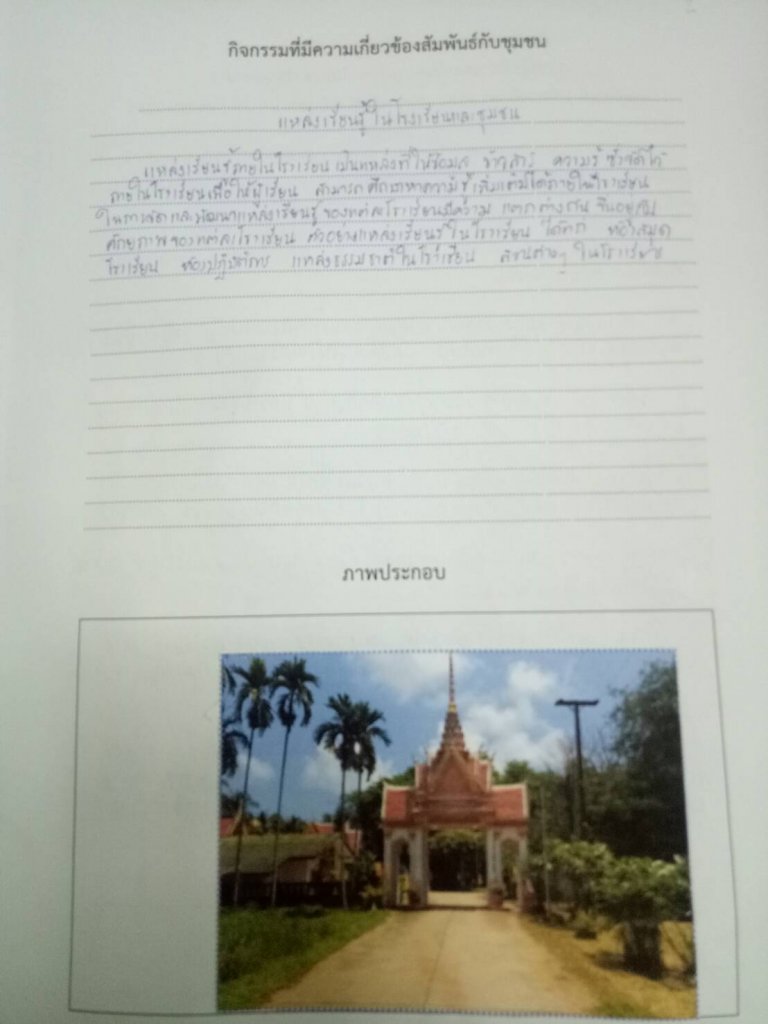 กิจกรรมที่มีความเกี่ยวข้องสัมพันธ์กับชุมชน
แหล่งเรียนรู้ในโรงเรียนและชุมชน
แหล่งเรียนรู้ภายในโรงเรียน เป็นแหล่งที่ให้ข้อมูล ข่าวสาร ความรู้ ซึ่งจัดไว้
ภายในโรงเรียนเพื่อให้ผู้เรียน สามารถศึกษาหาความรู้เพิ่มเติมได้ภายในโรงเรียน
ในการจัดและพัฒนาแหล่งเรียนรู้ ของแต่ละโรงเรียนมีความ แตกต่างกัน ขึ้นอยู่กับ
ศักยภาพของแต่ละโรงเรียน ตัวอย่างแหล่งเรียนรู้ในโรงเรียน ได้แก่ ห้องสมุด
โรงเรียน ห้องปฏิบัติการ แหล่งธรรมชาติในโรงเรียน ต่างๆ ในโรงเรียน
ภาพประกอบ